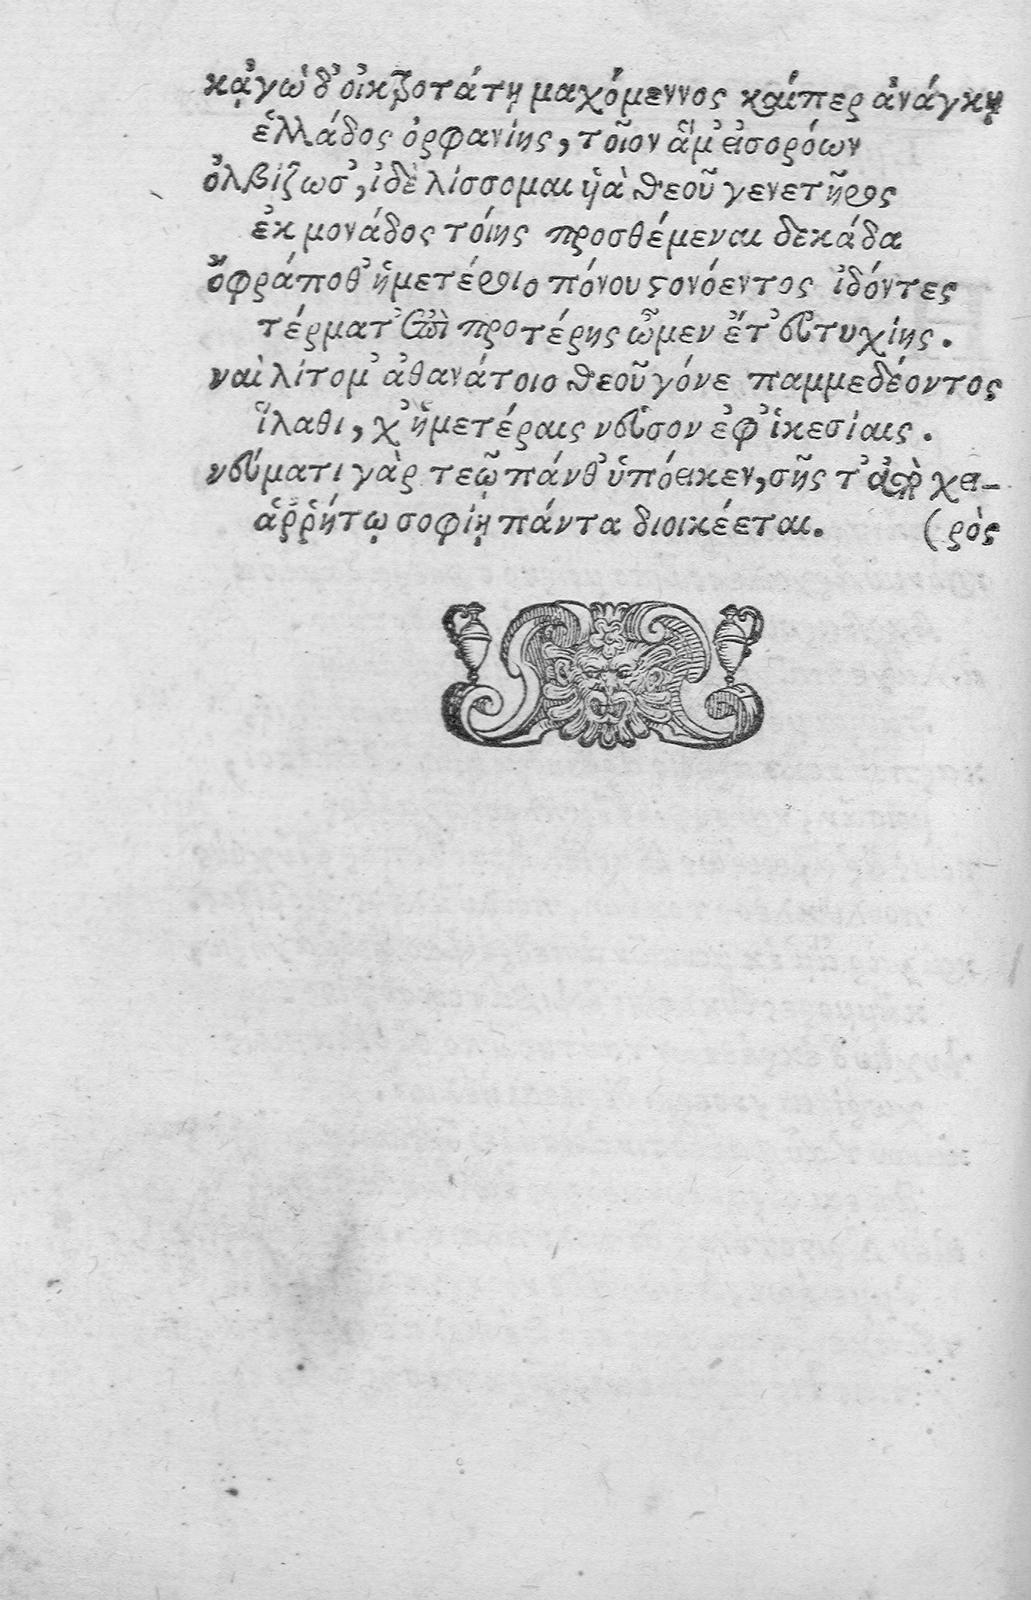 κᾀγὼ δ' οἰκτροτάτῃ μαχόμεννος καίπερ ἀνάγκῃ
ἑλλάδος ὀρφανίης, τοῖον ἅμ' εἰσορόων
ὀλβίζωσ', ἰδὲ λίσσομαι ἠὰ θεοῦ γενετῆρος
ἐκ μονάδος τόιης προσθέμεναι δεκάδα
ὄφρά ποθ' ἡμετέροιο πόνου στονόεντος ἰδόντες
τέρματ' ἐπὶ προτέρης ὦμεν ἔτ' εὐτυχίης.
ναὶ λίτομ' ἀθανάτοιο θεοῦ γόνε παμμεδέοντος
ἵλαθι, χ' ἡμετέραις νεῦσον ἐφ' ἱκεσίαις.
νεύματι γὰρ τεῷ πάνθ' ὑπόεικεν, σῆς τ' ἀπὸ χει-
ἀῤῥήτῳ σοφίῃ πάντα διοικέεται. (ρὸς